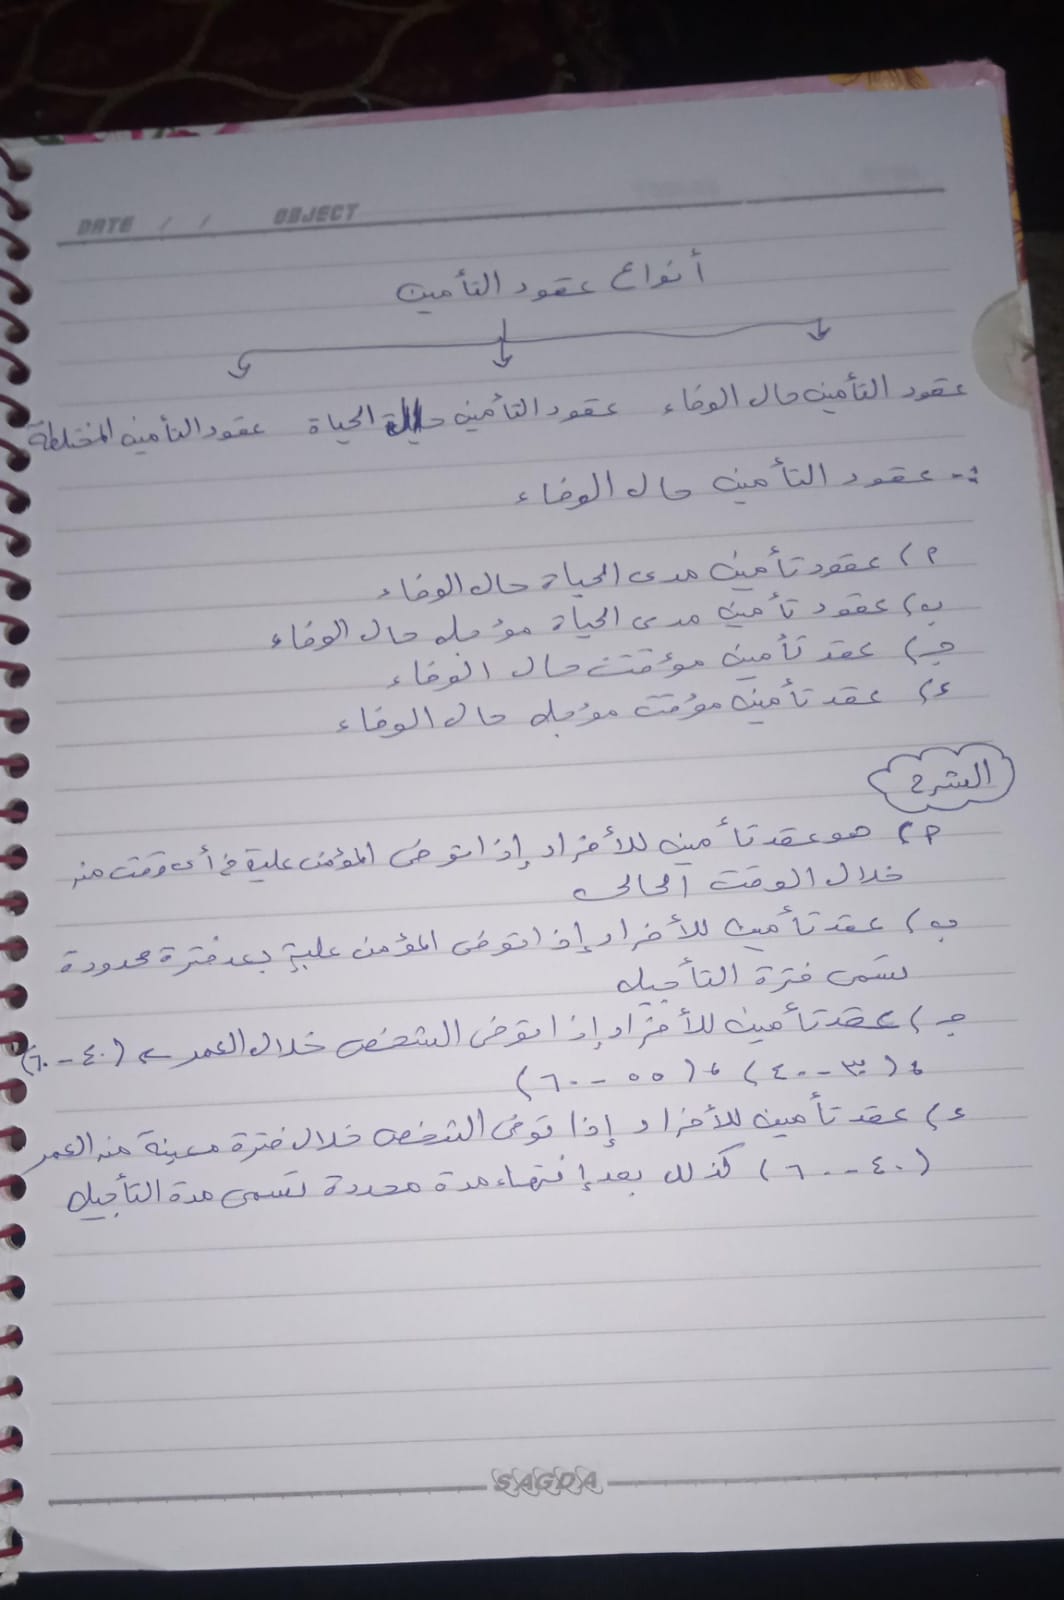 DATE / / OBJECT
أنواع عقود التأمين
عقود التأمين حال الوفاء عقود التأمين حال الحياة عقود التأمين المختلطة
:- عقود التأمين حال الوفاء
أ) عقود تأمين مدى الحياة حال الوفاء
ب) عقود تأمين مدى الحياة مؤجله حال الوفاء
جـ) عقد تأمين مؤقت حال الوفاء
ء) عقد تأمين مؤقت مؤجله حال الوفاء
الشرح
أ) هو عقد تأمين للأفراد إذا توفى المؤمن علية فى أى وقت من
خلال الوقت الحالى
ب) عقد تأمين للأفراد إذا توفى المؤمن علية بعد فترة محدودة
تسمى فترة التأجيل
جـ) عقد تأمين للأفراد إذا توفى الشخص خلال العمر ← (٤٠-٦٠)
، (٣٠-٤٠) ، (٥٥-٦٠)
ء) عقد تأمين للأفراد إذا توفى الشخص خلال فترة معينة من العمر
(٤٠-٦٠) كذلك بعد إنتهاء مدة محددة تسمى مدة التأجيل
SAGDA